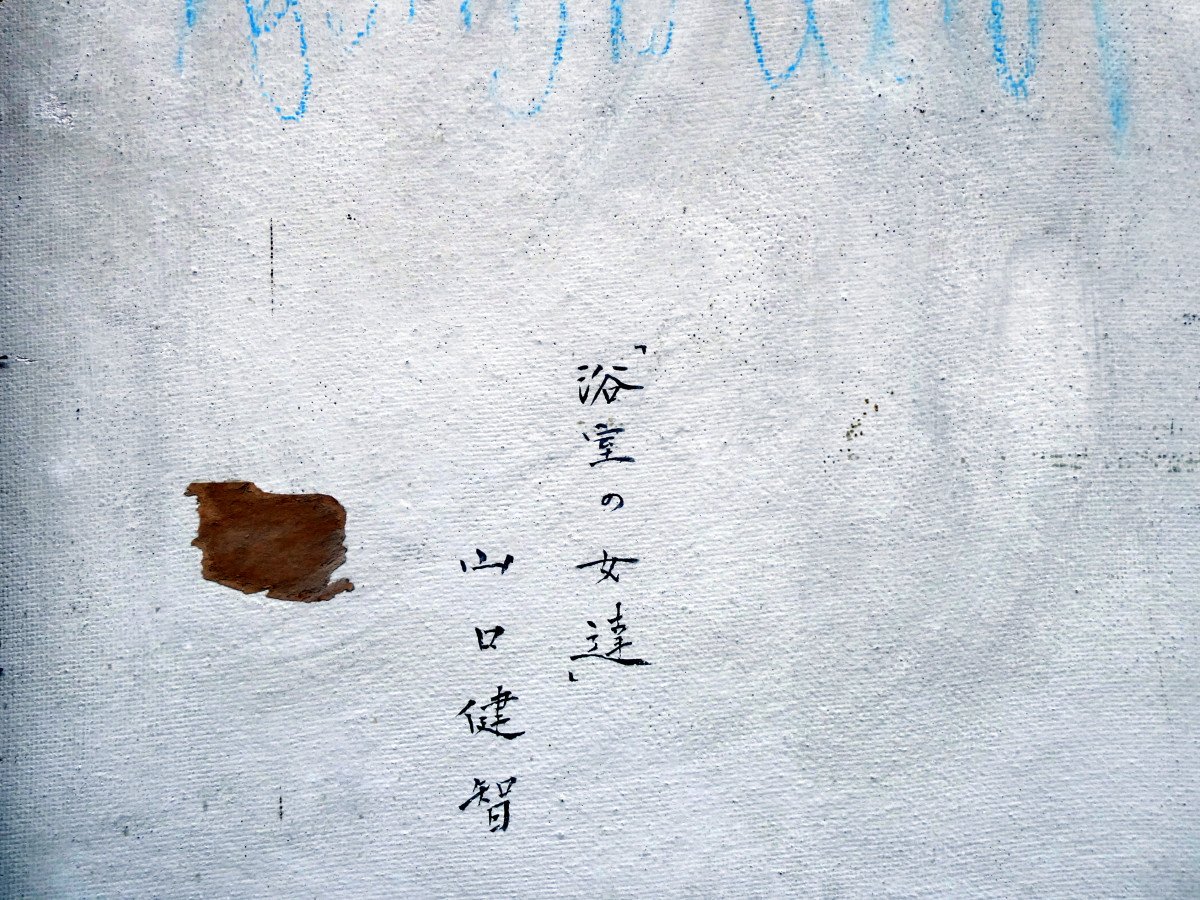 「浴室の女達」
山口健智